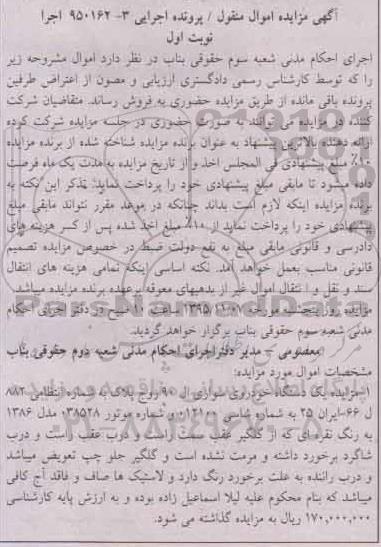 آگهی مزایده اموال منقول / پرونده اجرایی ۳- ۹۵۰۱۶۲ اجرا
نوبت اول
اجرای احکام مدنی شعبه سوم حقوقی بناب در نظر دارد اموال مشروحه زیر
را که توسط کارشناس رسمی دادگستری ارزیابی و مصون از اعتراض طرفین
پرونده باقی مانده از طریق مزایده حضوری به فروش رساند. متقاضیان شرکت
کننده در مزایده می توانند به صورت حضوری در جلسه مزایده شرکت کرده
ارائه دهنده بالاترین پیشنهاد به عنوان برنده مزایده شناخته شده از برنده مزایده
۱۰٪ مبلغ پیشنهادی فی المجلس اخذ و از تاریخ مزایده به مدت یک ماه فرصت
داده میشود تا مابقی مبلغ پیشنهادی خود را پرداخت نماید. تذکر این نکته به
برنده مزایده اینکه لازم است بداند چنانکه در موعد مقرر نتواند مابقی مبلغ
پیشنهادی خود را پرداخت نماید از ۱۰٪ مبلغ اخذ شده پس از کسر هزینه های
دادرسی و قانونی مابقی مبلغ به نفع دولت ضبط در خصوص مزایده تصمیم
قانونی مناسب بعمل خواهد آمد. نکته اساسی اینکه تمامی هزینه های انتقال
سند و نقل و انتقال اموال غیر از بدهیهای معوقه برعهده برنده مزایده میباشد.
مزایده روز پنجشنبه مورخه ۱۳۹۵/۱۱/۰۷ ساعت ۱۰ صبح در دفتر اجرای احکام
مدنی شعبه سوم حقوقی بناب برگزار خواهد گردید.
معصومی – مدیر دفتراجرای احکام مدنی شعبه دوم حقوقی بناب
مشخصات اموال مورد مزایده:
۱-مزایده یک دستگاه خودروی سواری ال ۹۰ روج پلاک به شماره انتظامی ۸۸۲
ل ۶۶-ایران ۲۵ به شماره شاسی ۰۱۲۱۰۰ و شماره موتور ۰۳۸۵۲۸ مدل ۱۳۸۶
به رنگ نقره ای که از گلگیر عقب سمت راست و درب عقب راست و درب
شاگرد برخورد داشته و مرمت نشده است و گلگیر جلو چپ تعویض میباشد
و درب راننده به علت برخورد رنگ دارد و لاستیک ها صاف و فاقد آج کافی
میباشد که بنام محکوم علیه لیلا اسماعیل زاده بوده و به ارزش پایه کارشناسی
۱۷۰,۰۰۰,۰۰۰ ریال به مزایده گذاشته می شود.
ParsNamadData
پایگاه اطلاع رسانی مناقصه و مزایده
۰۲۱-۸۸۳۴۹۶۷۰-۵